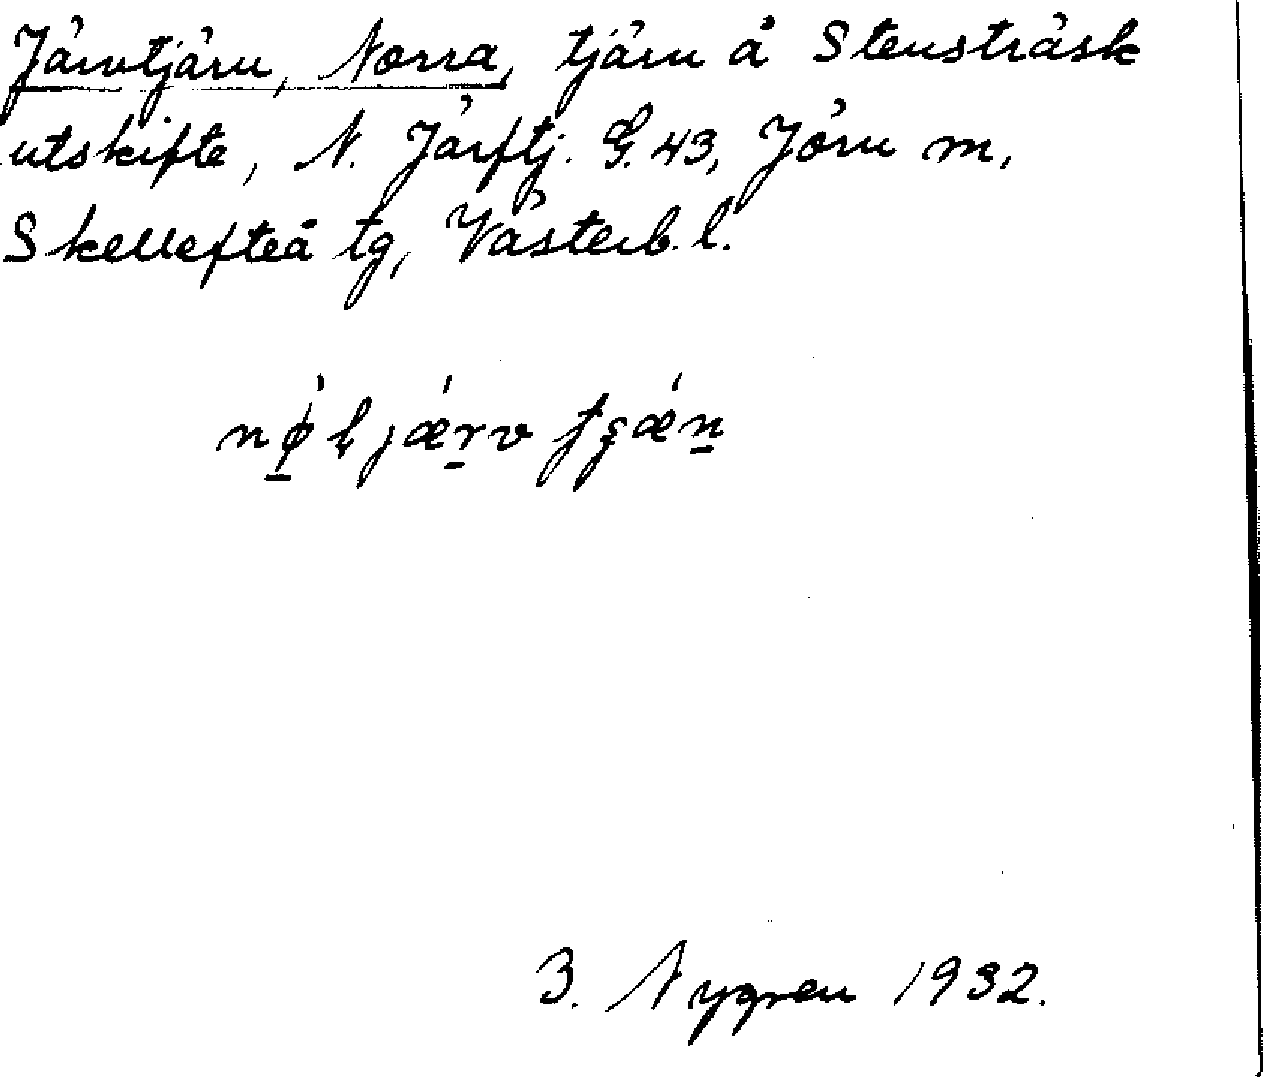 Järvtjärn, Norra, tjärn å Stensträsk
utskifte, N. Järftj. G. 43, Jörn m,
Skellefteå tg, Västerb. l.
B. Nygren 1932.